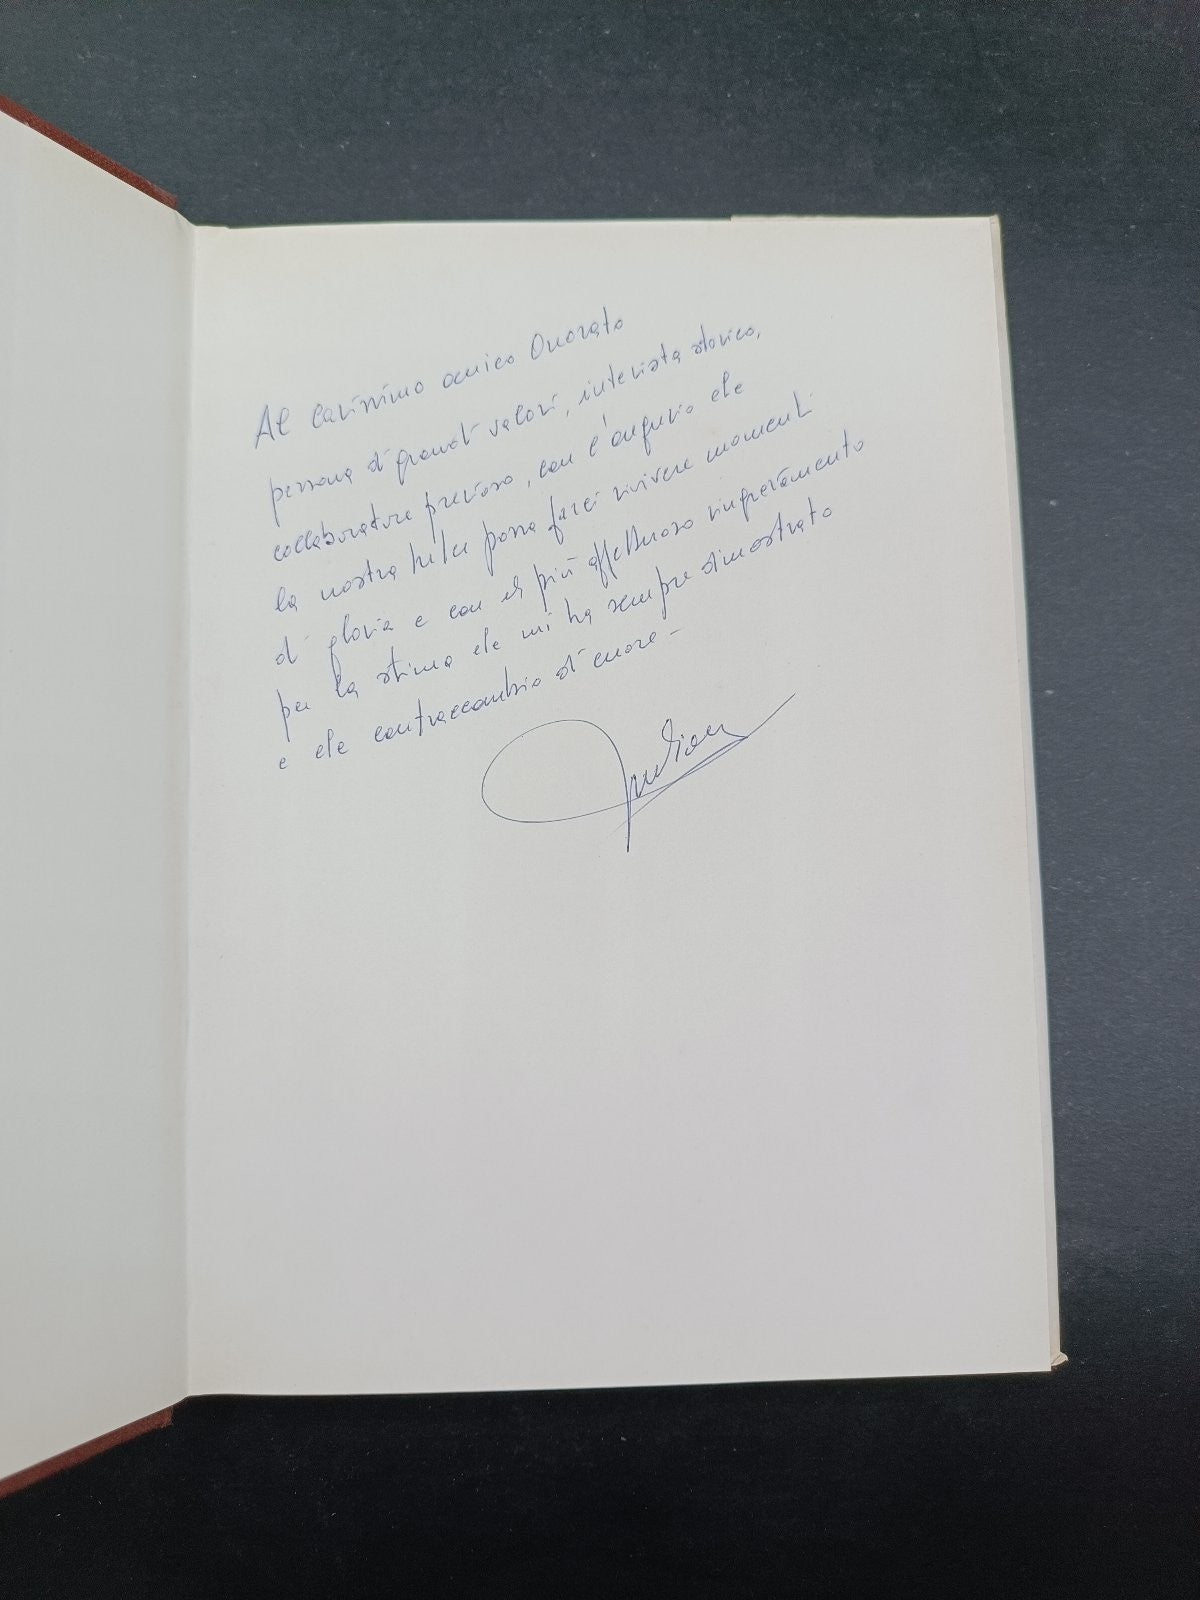 Al carissimo amico Onorato
persona di grandi valori, interista storico,
collaboratore prezioso, con l'augurio che
la nostra Inter possa farci rivivere momenti
di gloria e con il più affettuoso ringraziamento
per la stima che mi ha sempre dimostrato
e che contraccambio di cuore -